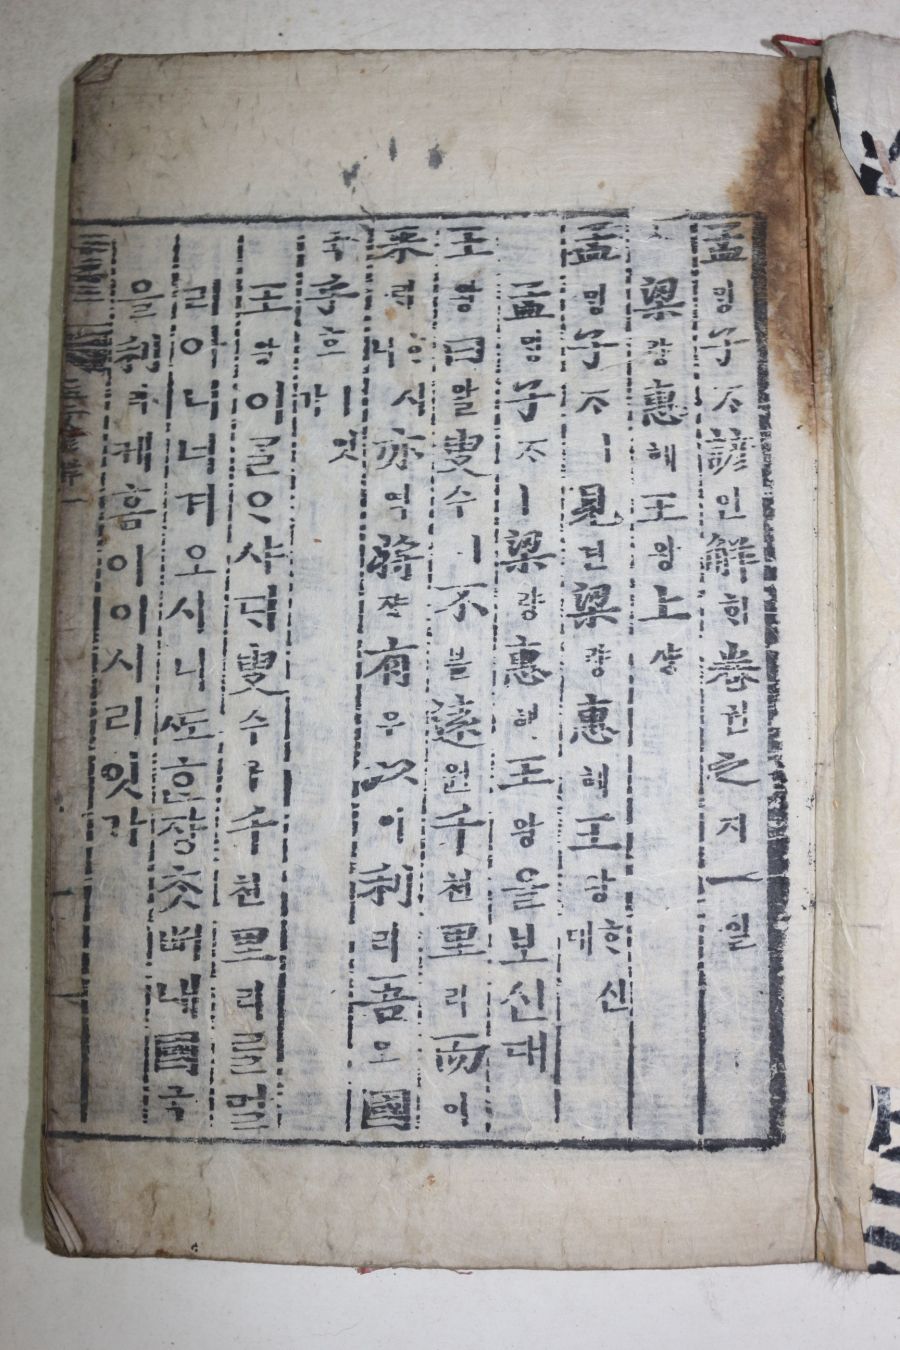 孟밍子ᄌᆞ諺언解ᄒᆡ卷권之지一일
梁량惠혜王왕上샹
孟밍子ᄌᆞㅣ見견梁량惠혜王왕ᄒᆞ신대
孟밍子ᄌᆞㅣ梁량惠혜王왕을보신대
王왕曰왈叟수ㅣ不블遠원千쳔里리而이
來ᄅᆡᄒᆞ시니亦역將쟝有유以이利리吾오國
국乎호ㅣ잇가
王왕이ᄀᆞᆯᄋᆞ샤ᄃᆡ叟수ㅣ千쳔里리ᄅᆞᆯ멀
리아니녀겨오시니ᄯᅩᄒᆞᆫ쟝ᄎᆞᆺᄡᅥ내國국
을利리케홈이이시리잇가